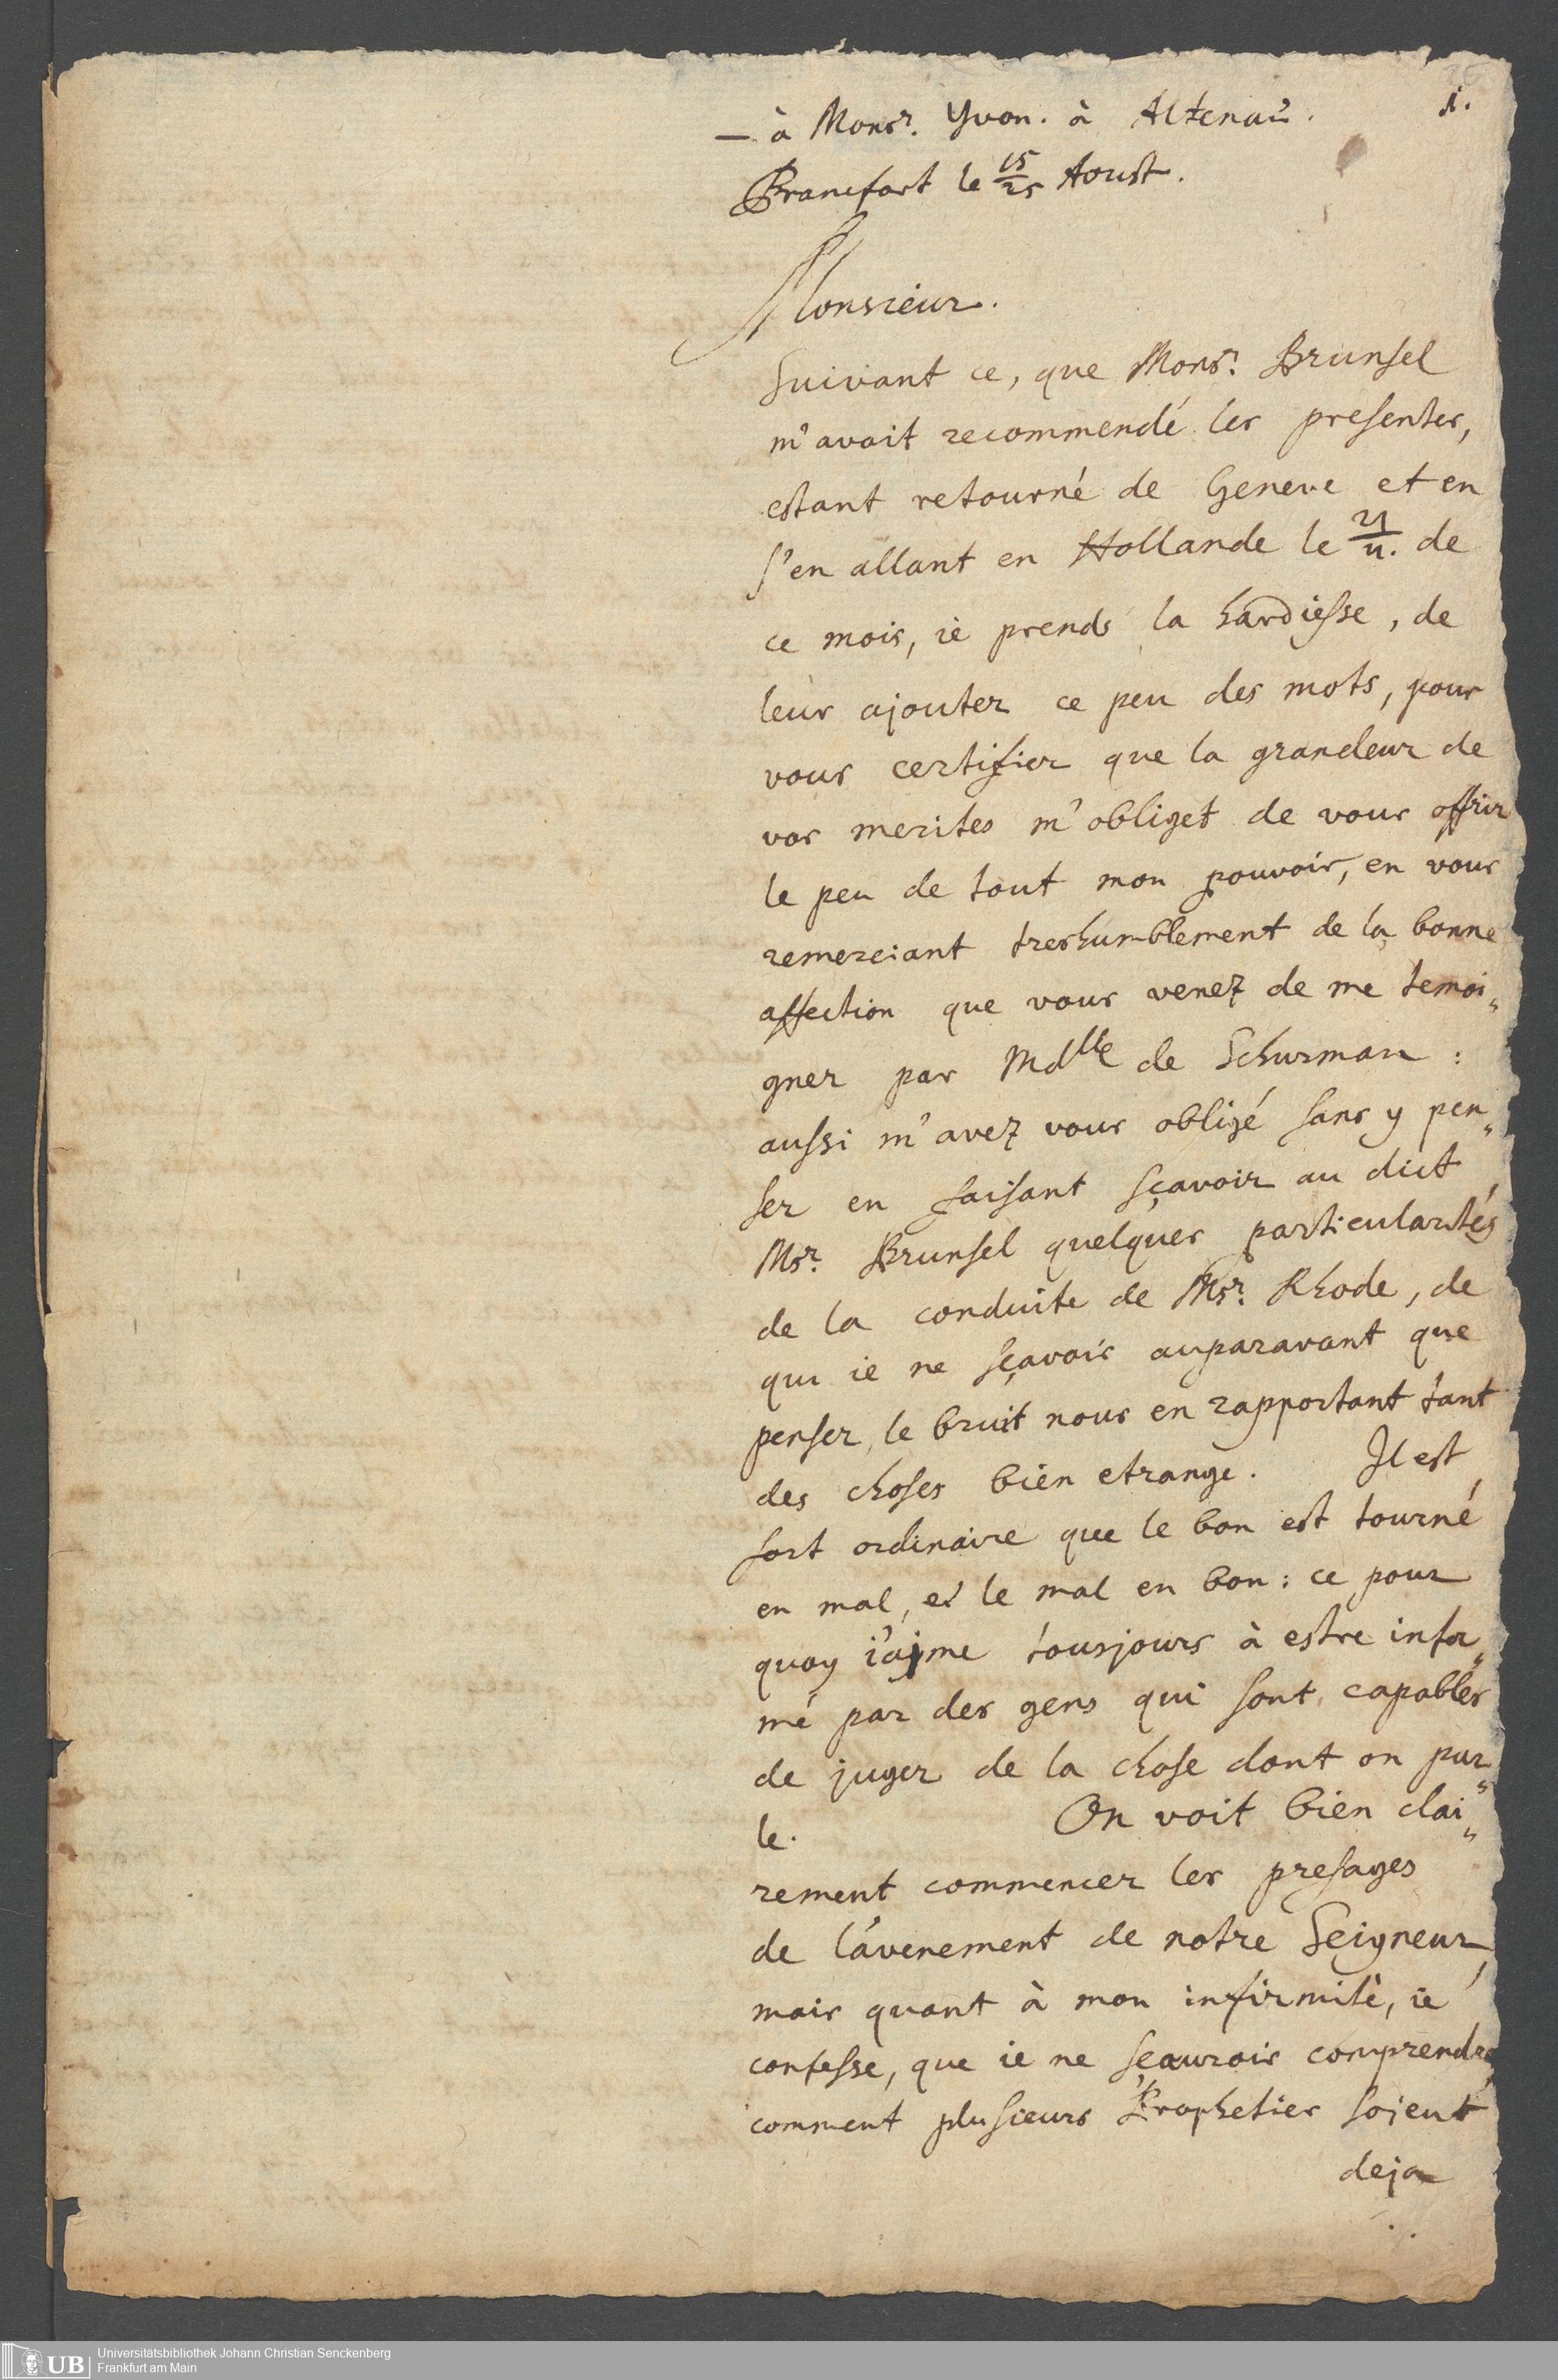 1.
— à Monsr. Yvon. à Altenaŭ.
Francfort le 15/25 Aoust.
Monsieur.
Suivant ce, que Monsr. Brunsel
m'avait recommendé les presentes,
estant retourné de Geneve et en
s'en allant en Hollande le 21/11. de
ce mois, ie prends la hardiesse, de
leur ajouter ce peu des mots, pour
vous certifier que la grandeur de
vos merites m'obliget de vous offrir
le peu de tout mon pouvoir, en vous
remerciant treshumblement de la bonne
affection que vous venez de me temoi„
gner par Mdlle de Schurman:
aussi m'avez vous obligé sans y pen„
ser en faisant sçavoir au dict
Msr. Brunsel quelques particularités
de la conduite de Msr. Rhode, de
qui ie ne sçavois auparavant que
penser, le bruit nous en rapportant tant
des choses bien etrange. Il est
fort ordinaire que le bon est tourné
en mal, et le mal en bon: ce pour
quoy i'ajme tousjours à estre infor„
mé par des gens qui sont capables
de juger de la chose dont on par„
le. On voit bien clai„
rement commencer les presages
de l'avenement de notre Seigneur,
mais quant à mon infirmité, ie
confesse, que ie ne sçaurois comprendre,
comment plusieurs Propheties sojent
deja
UB
Universitätsbibliothek Johann Christian Senckenberg
Frankfurt am Main